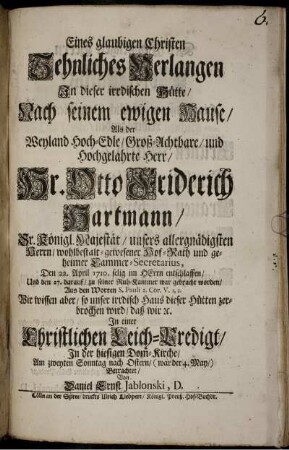 6.
Eines glaubigen Christen
Sehnliches Verlangen
In dieser irrdischen Hütte/
Nach seinem ewigen Hause/
Als der
Weyland Hoch-Edle/ Groß-Achtbare/ und
Hochgelahrte Herr/
Hr. Otto Friderich
Hartmann/
Sr. Königl. Majestät/ unsers allergnädigsten
Herrn/ wohlbestalt-gewesener Hof-Rath und ge-
heimer Cammer-Secretarius,
Den 22. April 1710. selig im HErrn entschlaffen/
Und den 27. darauf/ zu seiner Ruh-Kammer war gebracht worden/
Aus den Worten S. Pauli 2. Cor. V. 1. 2.
Wir wissen aber/ so unser irrdisch Haus dieser Hütten zer-
brochen wird/ daß wir ꝛc.
In einer
Christlichen Leich-Predigt/
In der hiesigen Dom-Kirche/
Am zweyten Sonntag nach Ostern/ (war der 4. May/)
Betrachtet/
Von
Daniel Ernst Jablonski, D.
Cölln an der Spree/ druckts Ulrich Liebpert/ Königl. Preuß. Hof-Buchdr.